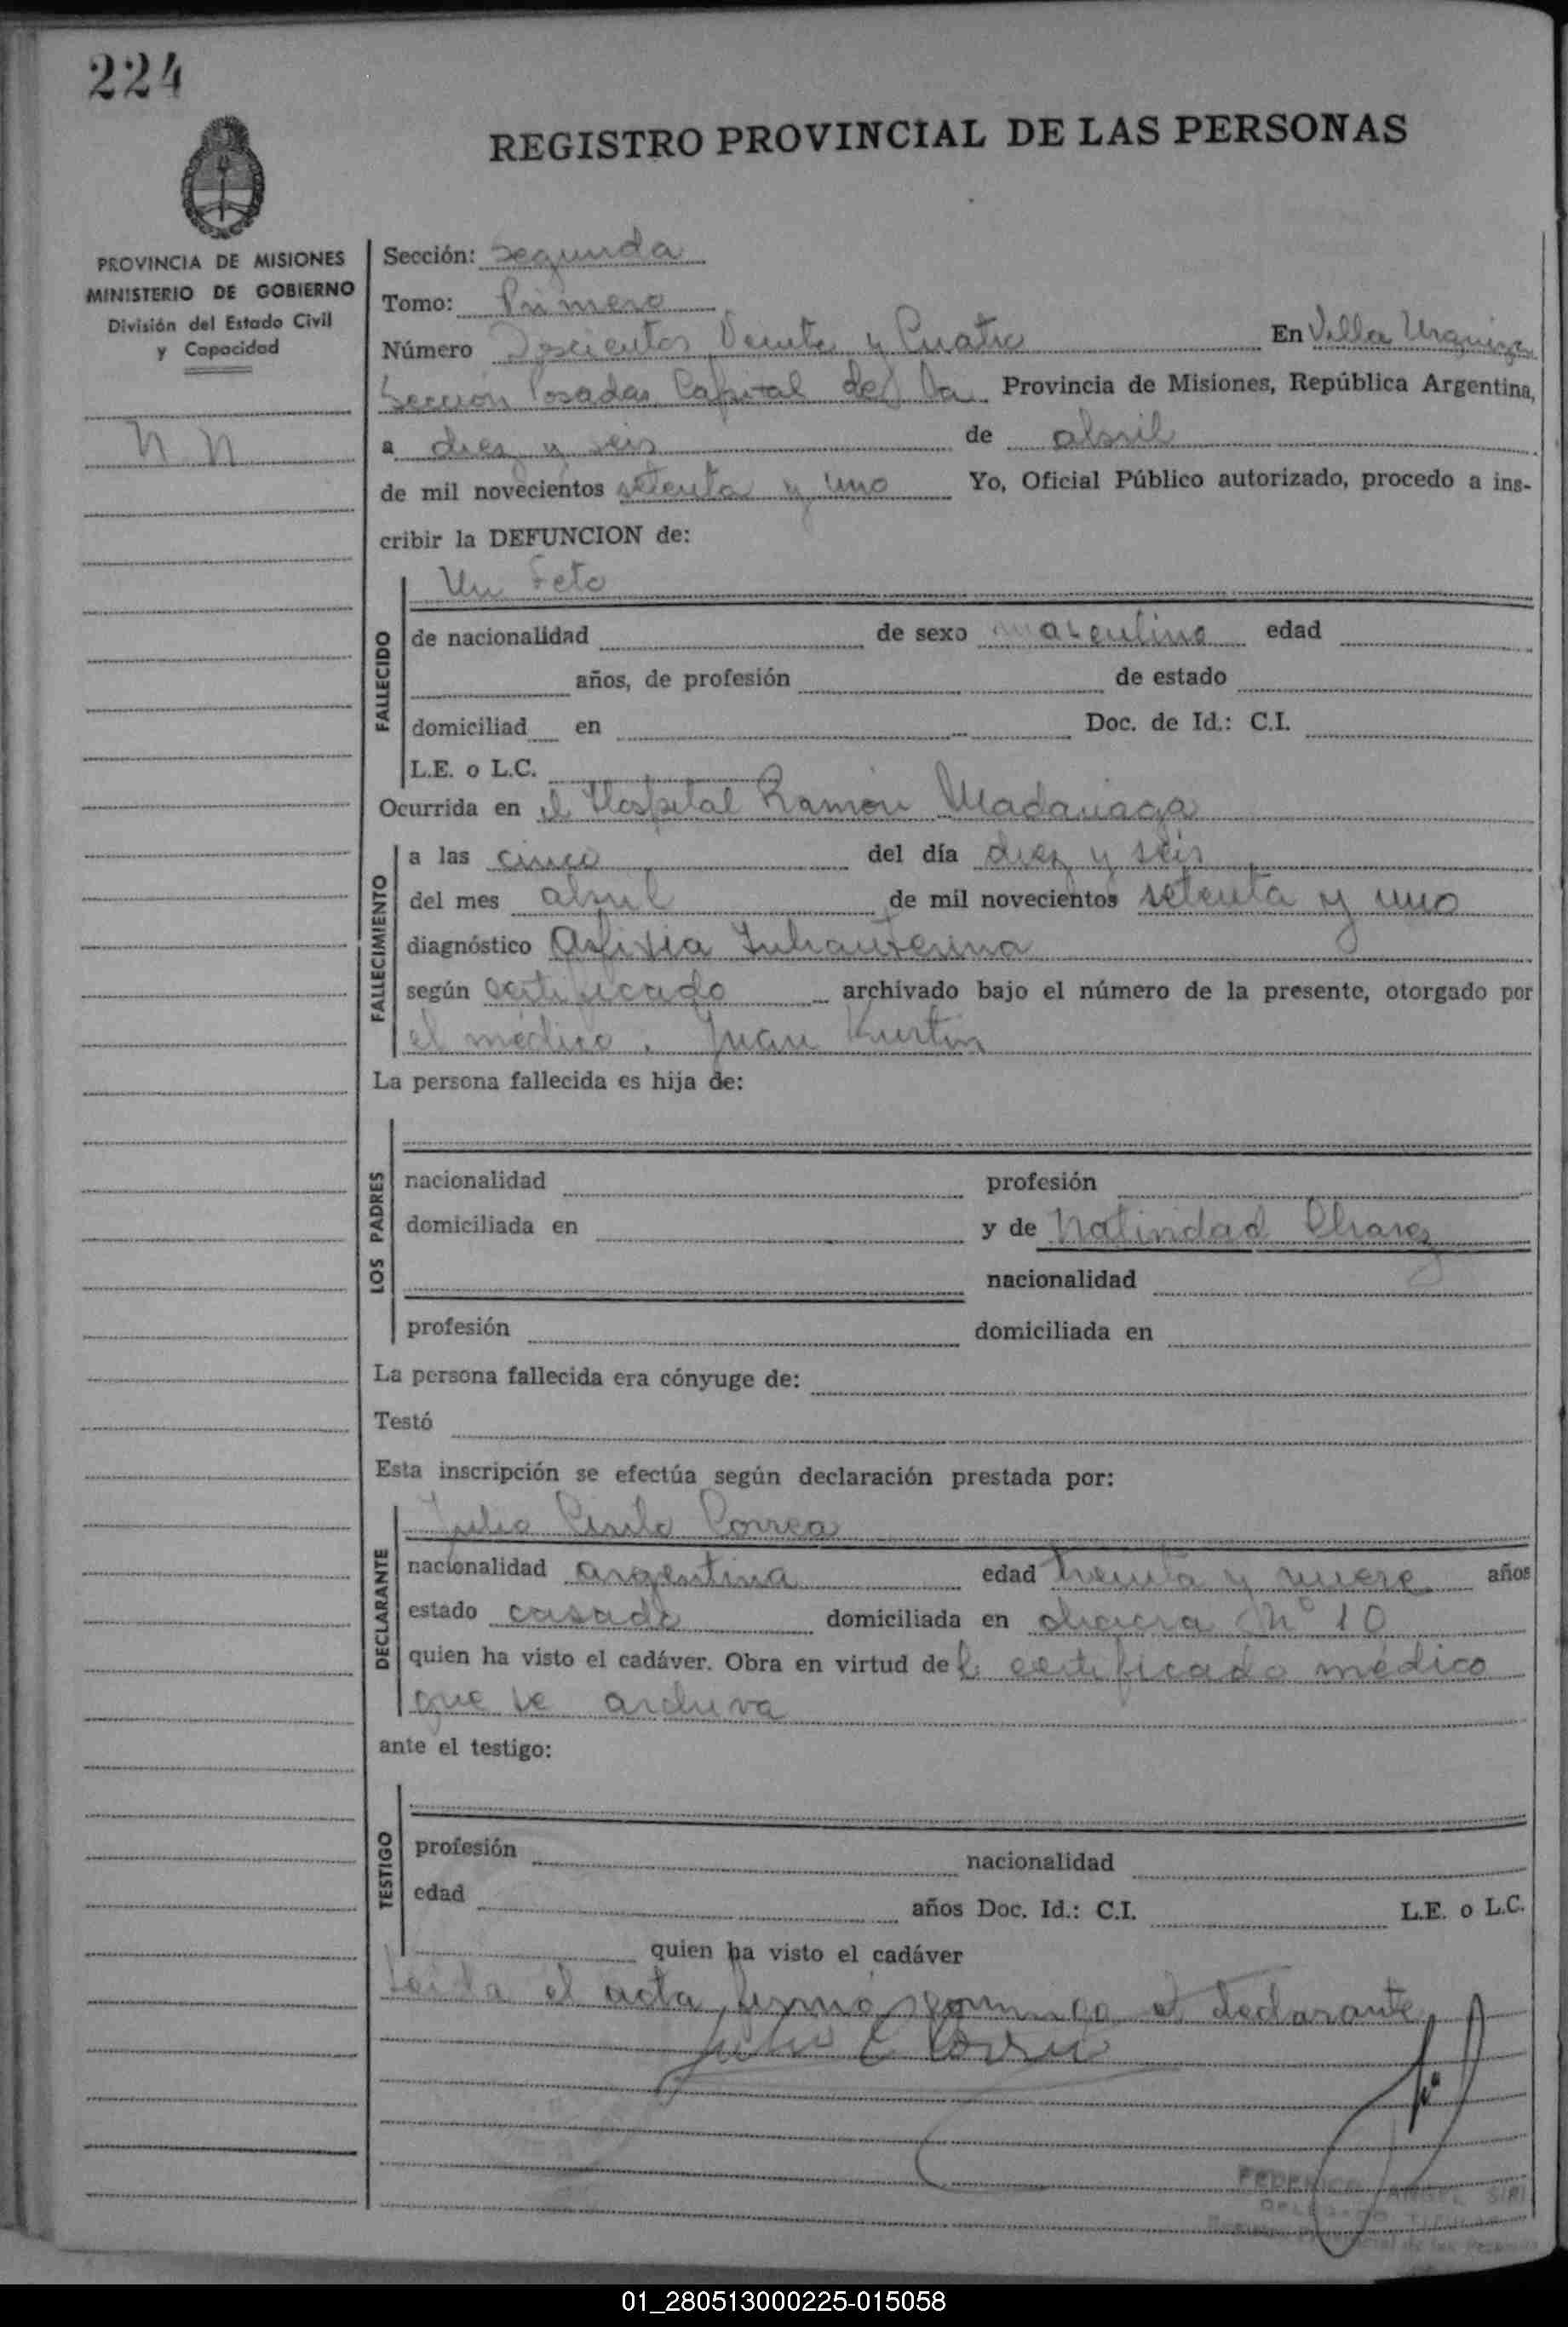 224
REGISTRO PROVINCIAL DE LAS PERSONAS
PROVINCIA DE MISIONES
MINISTERIO DE GOBIERNO
División del Estado Civil
y Capacidad
N. N.
Sección: Segunda
Tomo: Primero
Número Doscientos Veinte y Cuatro En Villa Urquiza
Sección Posadas Capital de la Provincia de Misiones, República Argentina,
a diez y seis de abril
de mil novecientos setenta y uno Yo, Oficial Público autorizado, procedo a ins-
cribir la DEFUNCION de:
FALLECIDO
Un Feto
de nacionalidad de sexo masculino edad
años, de profesión de estado
domiciliad en Doc. de Id.: C.I.
L.E. o L.C.
Ocurrida en el Hospital Ramón Madariaga
FALLECIMIENTO
a las cinco del día diez y seis
del mes abril de mil novecientos setenta y uno
diagnóstico Asfixia Intrauterina
según certificado archivado bajo el número de la presente, otorgado por
el médico. Juan Kurtin
La persona fallecida es hija de:
LOS PADRES
nacionalidad profesión
domiciliada en y de Natividad Chavez
nacionalidad
profesión domiciliada en
La persona fallecida era cónyuge de:
Testó
Esta inscripción se efectúa según declaración prestada por:
DECLARANTE
Julio Correa
nacionalidad argentina edad treinta y nueve años
estado casado domiciliada en chacra Nº 10
quien ha visto el cadáver. Obra en virtud del certificado médico
que se archiva
ante el testigo:
TESTIGO
profesión nacionalidad
edad años Doc. Id.: C.I. L.E. o L.C.
quien ha visto el cadáver
Leida el acta, firmó conmigo el declarante
Julio C Correa
FEDERICO ANGEL SIRI
01_280513000225-015058